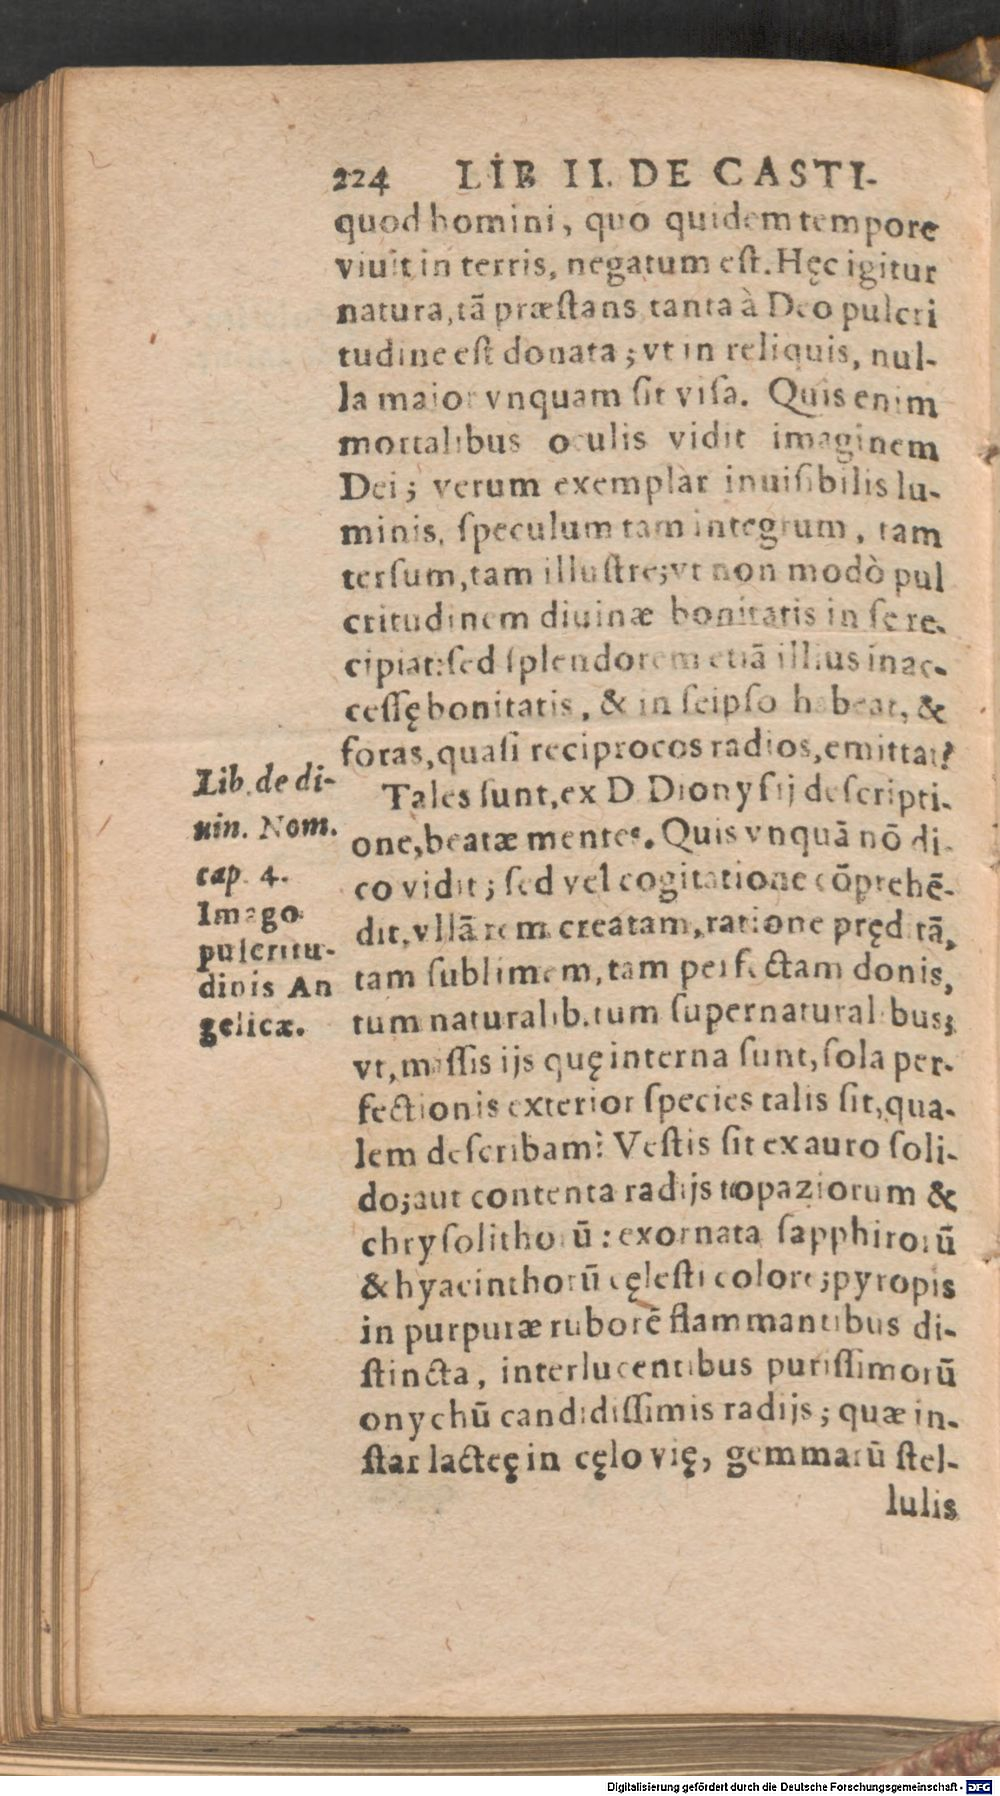 224 LIB II. DE CASTI-
quod homini, quo quidem tempore
viuit in terris, negatum eſt. Hęc igitur
natura, tã præſtans tanta à Deo pulcri
tudine eſt donata; vt in reliquis, nul-
la maior vnquam ſit viſa. Quis enim
mortalibus oculis vidit imaginem
Dei; verum exemplar inuiſibilis lu-
minis, ſpeculum tam integrum, tam
terſum, tam illuſtre; vt non modò pul
critudinem diuinæ bonitatis in ſe re-
cipiat: ſed ſplendorem etiã illius inac-
ceſſę bonitatis, & in ſeipſo habeat, &
foras, quaſi reciprocos radios, emittat?
Tales ſunt, ex D Dionyſij deſcripti-
one, beatæ mentes. Quis vnquã nõ di-
co vidit; ſed vel cogitatione cõprehẽ-
dit, vllã rem creatam, ratione pręditã,
tam ſublimem, tam perfectam donis,
tum naturalib. tum ſupernaturalibus;
vt, miſſis ijs quę interna ſunt, ſola per-
fectionis exterior ſpecies talis ſit, qua-
lem deſcribam? Veſtis ſit ex auro ſoli-
do; aut contenta radijs topaziorum &
chryſolithorũ: exornata ſapphirorũ
& hyacinthorũ cęleſti colore; pyropis
in purpuræ ruborẽ flammantibus di-
ſtincta, interlucentibus puriſſimorũ
onychũ candidiſſimis radijs; quæ in-
ſtar lacteę in cęlo vię, gemmarũ ſtel-
lulis
Lib. de di-
uin. Nom.
cap. 4.
Imago
pulcritu-
dinis An
gelicæ.
Digitalisierung gefördert durch die Deutsche Forschungsgemeinschaft - DFG